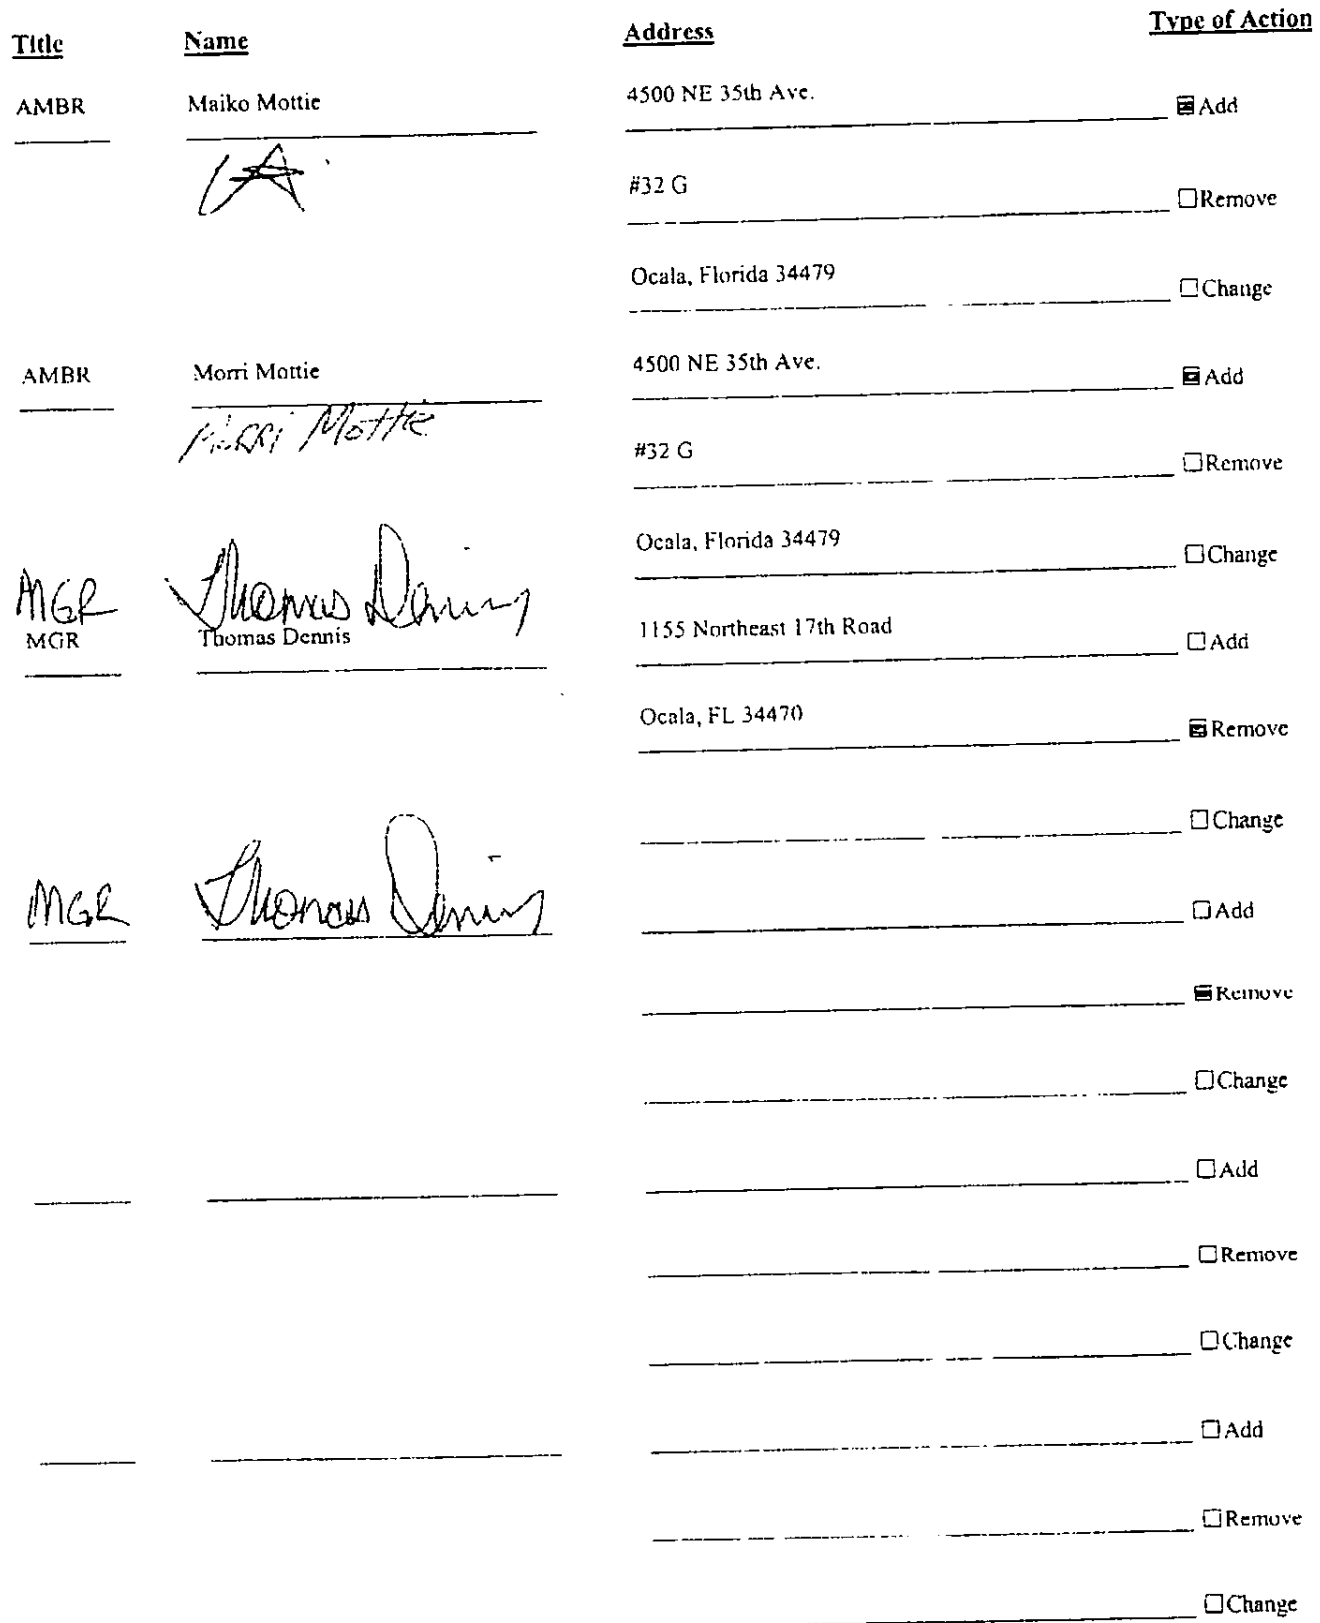 Title Name Address Type of Action
AMBR Maiko Mottie 4500 NE 35th Ave. Add
#32 G Remove
Ocala, Florida 34479 Change
AMBR Morri Mottie 4500 NE 35th Ave. Add
Morri Mottie
#32 G Remove
Ocala, Florida 34479 Change
MGR Thomas Dennis
MGR Thomas Dennis 1155 Northeast 17th Road Add
Ocala, FL 34470 Remove
Change
MGR Thomas Dennis Add
Remove
Change
Add
Remove
Change
Add
Remove
Change